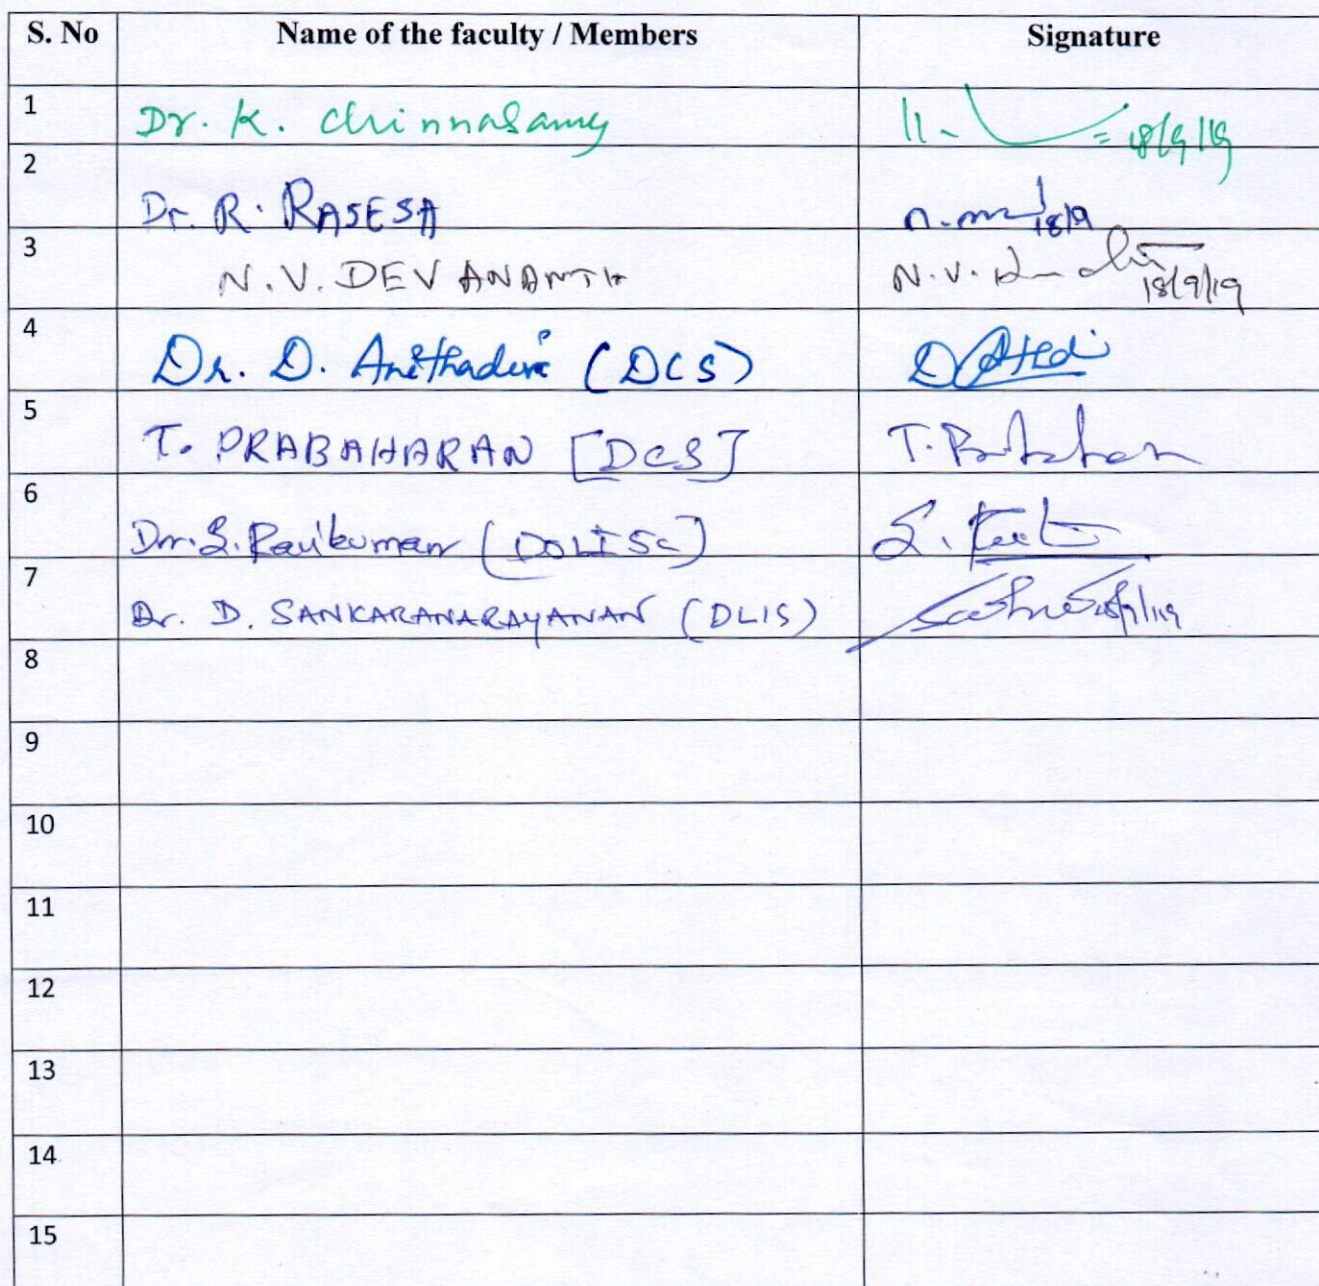 S. No Name of the faculty / Members Signature
1 Dr. K. Chinnasamy 18/9/19
2 Dr. R. RASESA 18/9
3 N.V. DEVANANTH N.V. 18/9/19
4 Dr. D. Anithadevi (DCS)
5 T. PRABAHARAN [DCS] T. Prabaharan
6 Dr. S. Ravikumar (DOLISc) S.
7 Dr. D. SANKARANARAYANAN (DLIS) 18/9/19
8
9
10
11
12
13
14
15